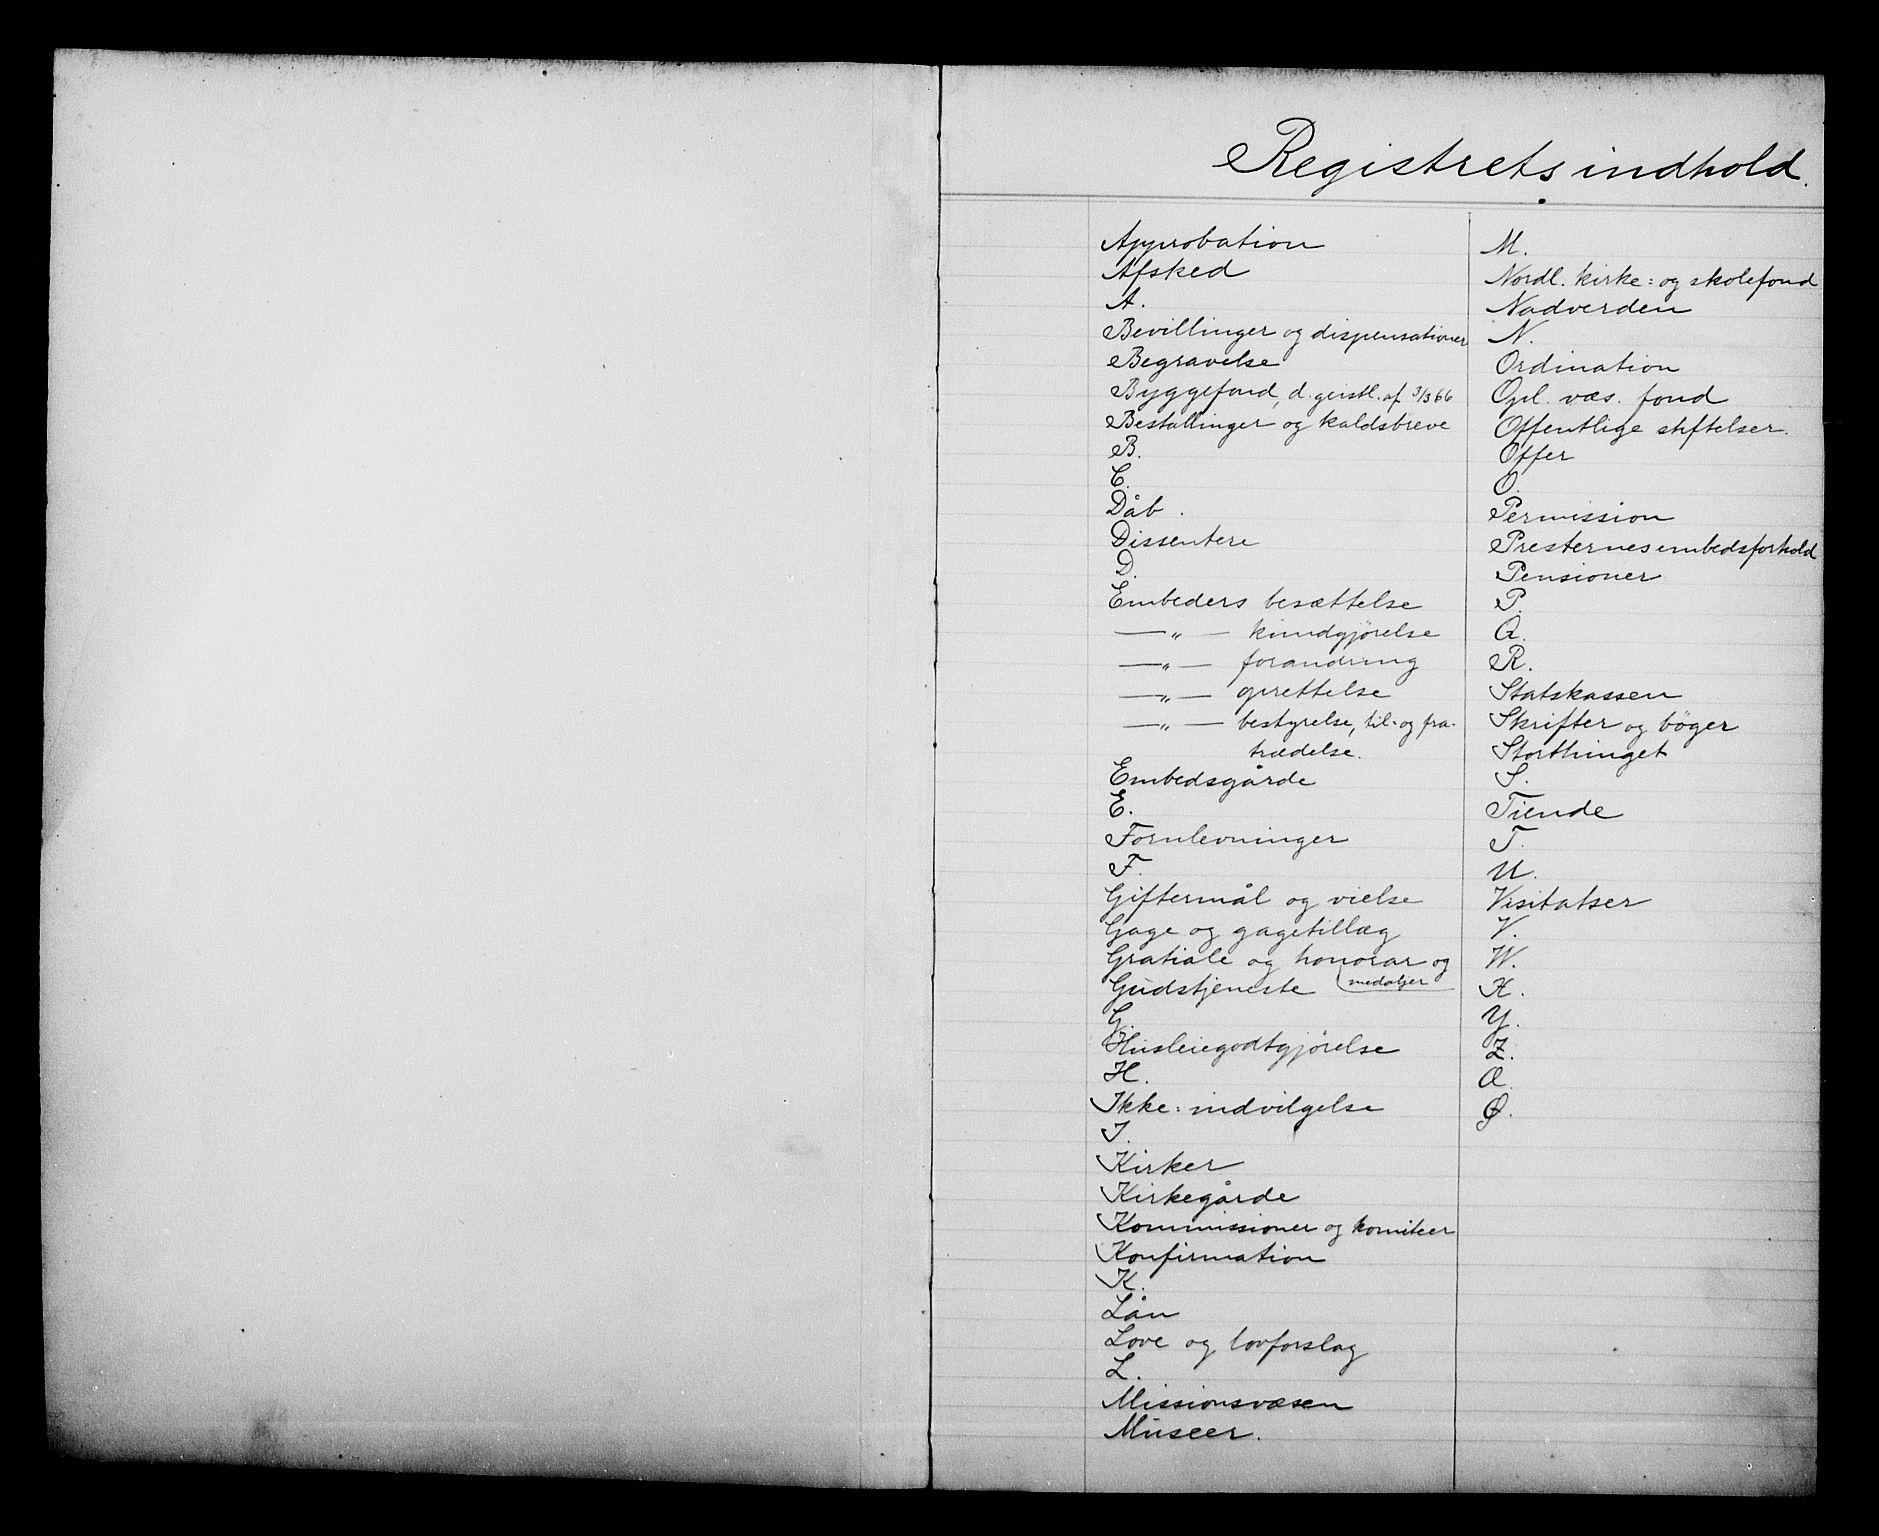 Registrets indhold.
Approbation
Afsked
A.
Bevillinger og dispensationer
Begravelse
Byggefond, d. geistl. af 3/3 66
Bestallinger og kaldsbreve
B.
C.
Dåb.
Dissentere
D.
Embeders besættelse
—„— kundgjørelse
—„— forandring
—„— oprettelse
—„— bestyrelse, til- og fra-
trædelse.
Embedsgårde
E.
Fornlevninger
F.
Giftermål og vielse
Gage og gagetillæg
Gratiale og honorar og
medaljer
Gudstjeneste
G.
Husleiegodtgjørelse
H.
Ikke: indvilgelse
I.
Kirker
Kirkegårde
Kommissioner og komiteer
Konfirmation
K.
Lån
Love og lovforslag
L.
Missionsvæsen
Museer.
M.
Nordl. kirke: og skolefond
Nadverden
N.
Ordination
Opl. væs. fond
Offentlige stiftelser.
Offer
O.
Permission
Presternes embedsforhold
Pensioner
P.
Q.
R.
Statskassen
Skrifter og bøger
Storthinget
S.
Tiende
T.
U.
Visitatser
V.
W.
X.
Y.
Z.
Æ.
Ø.